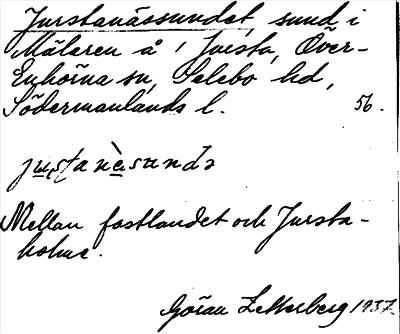 Jurstanässundet, sund i
Mälaren å Jursta, Över-
Enhörna sn, Selebo hd,
Södermanlands l. 56.
Mellan fastlandet och Jursta-
holme.
Göran Zetterberg 1937